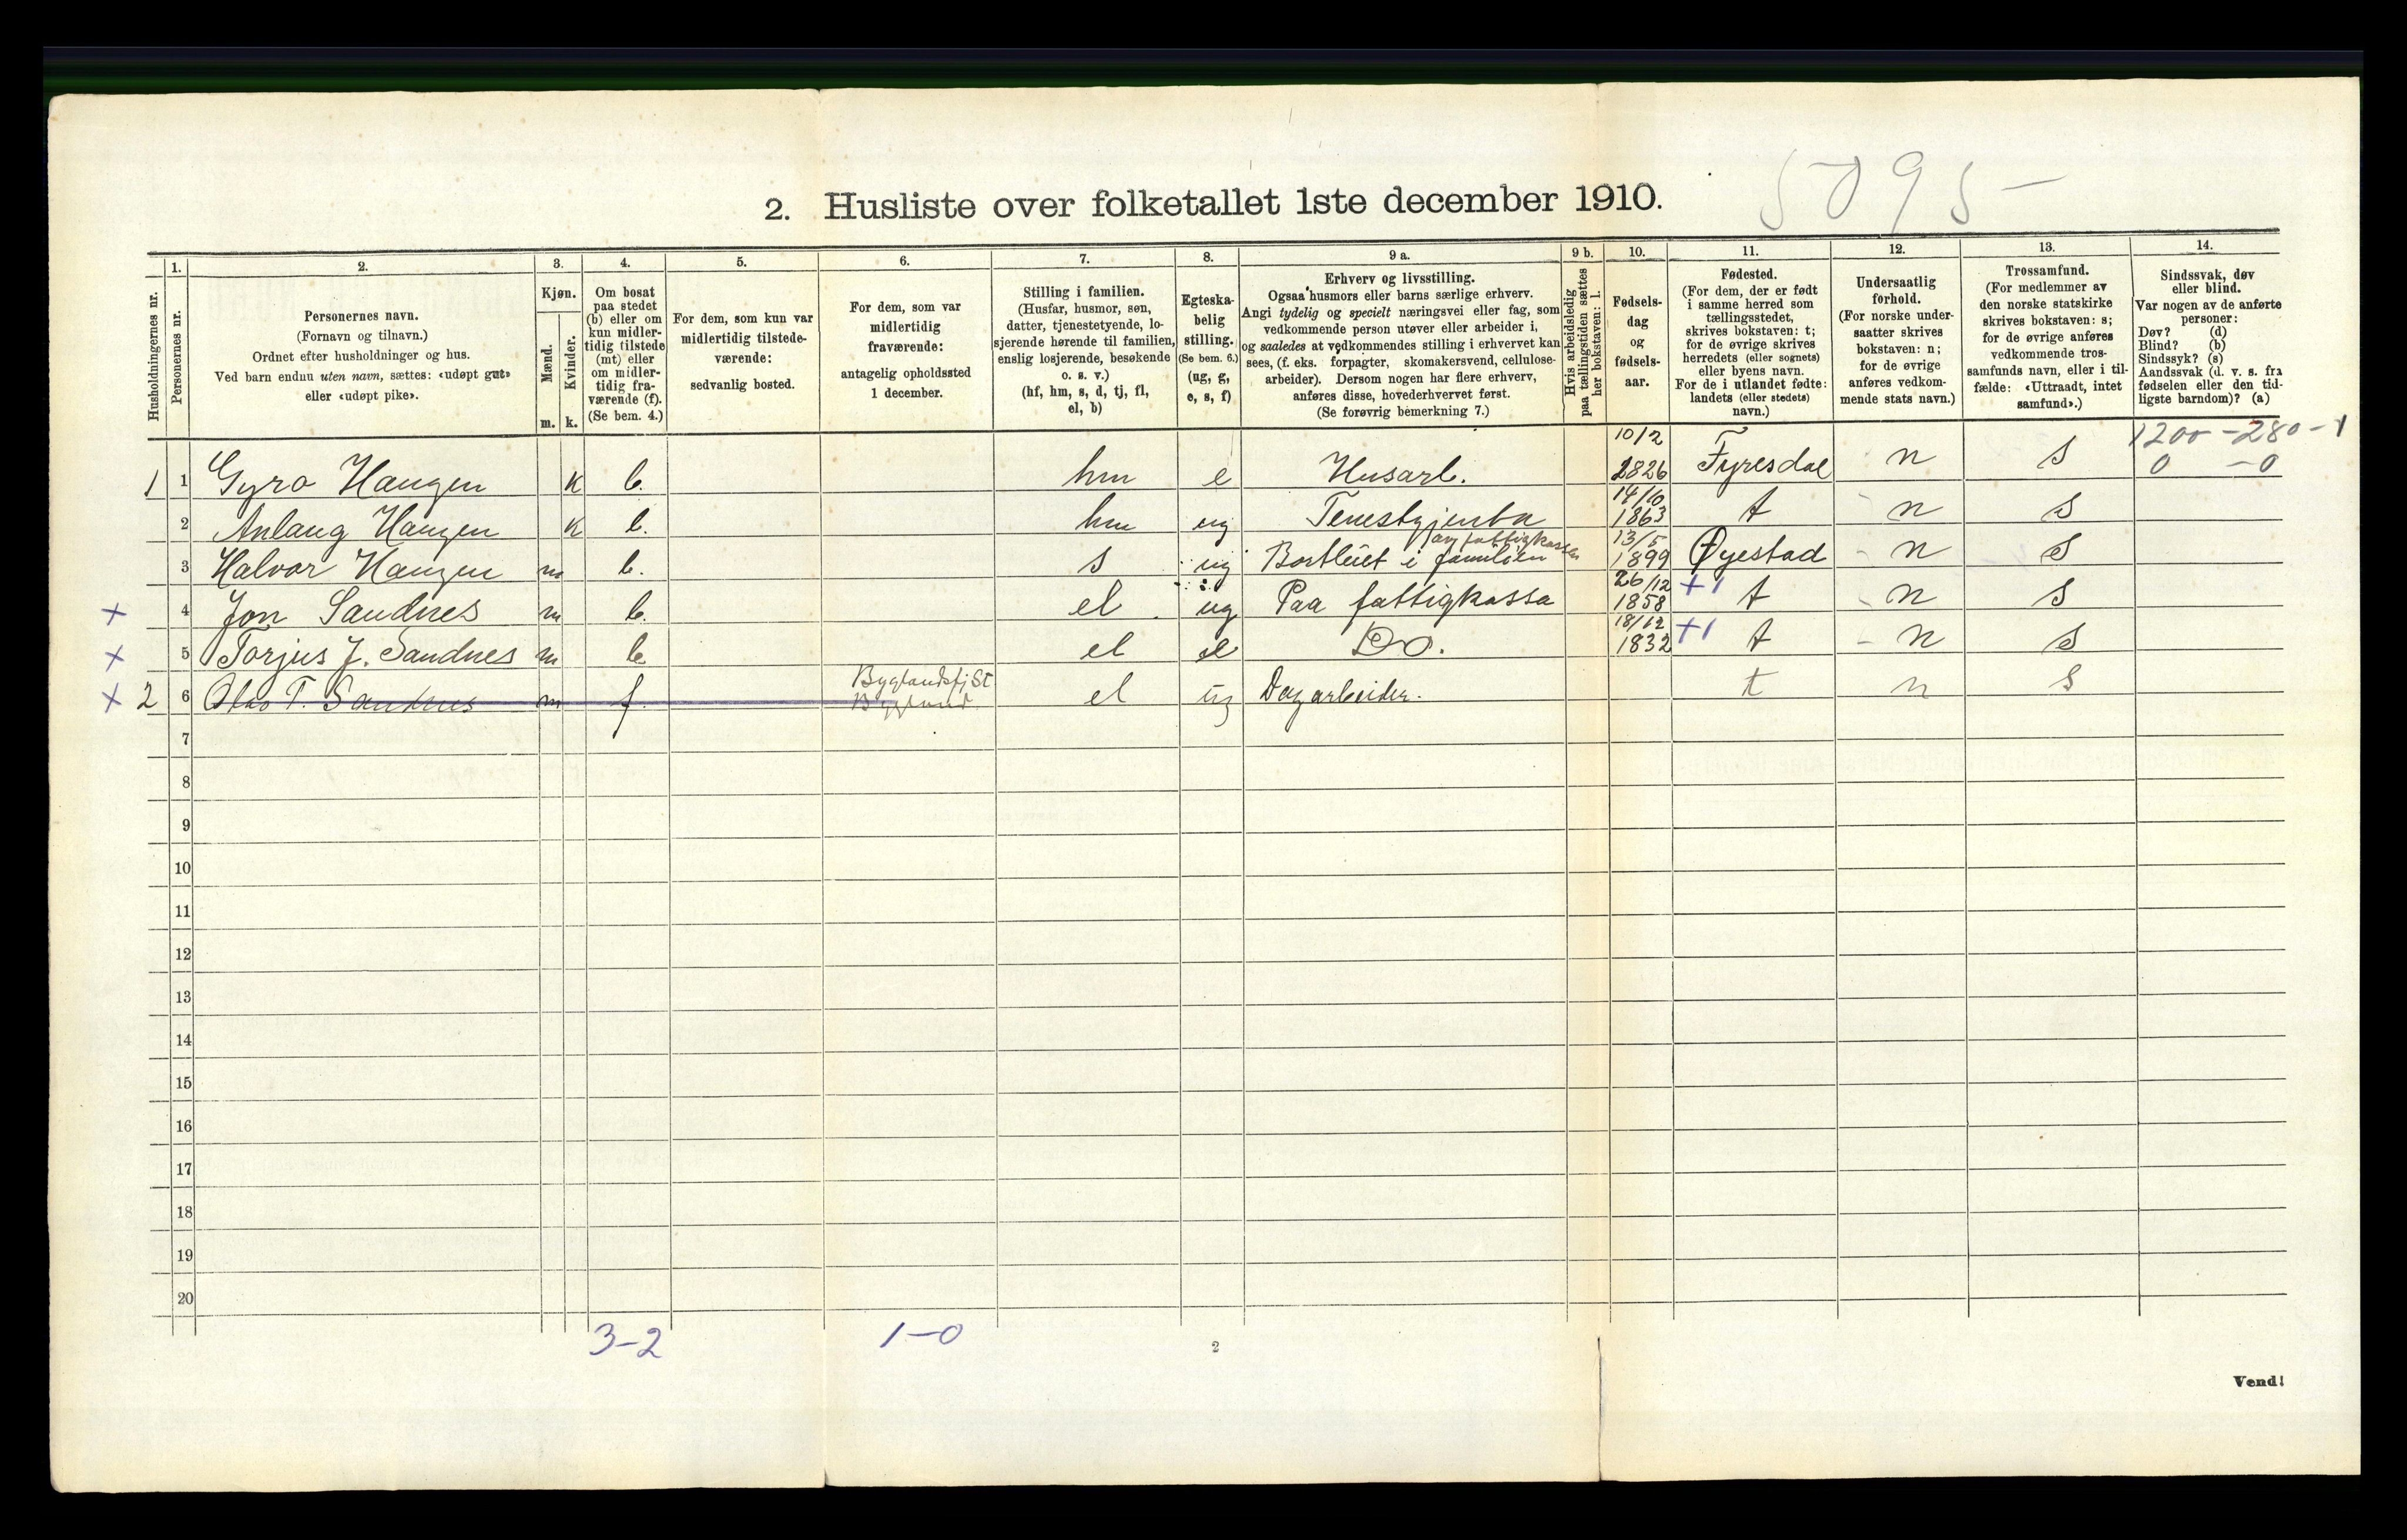 5095 –
2. Husliste over folketallet 1ste december 1910.
Husholdningernes nr.
1.
Personernes nr.
2.
Personernes navn.
(Fornavn og tilnavn.)
Ordnet efter husholdninger og hus.
Ved barn endnu uten navn, sættes: «udøpt gut»
eller «udøpt pike».
3.
Kjøn.
Mænd.
Kvinder.
m. k.
4.
Om bosat
paa stedet
(b) eller om
kun midler-
tidig tilstede
(mt) eller
om midler-
tidig fra-
værende (f).
(Se bem. 4.)
5.
For dem, som kun var
midlertidig tilstede-
værende:
sedvanlig bosted.
6.
For dem, som var
midlertidig
fraværende:
antagelig opholdssted
1 december.
7.
Stilling i familien.
(Husfar, husmor, søn,
datter, tjenestetyende, lo-
sjerende hørende til familien,
enslig losjerende, besøkende
o. s. v.)
(hf, hm, s, d, tj, fl,
el, b)
8.
Egteska-
belig
stilling.
(Se bem. 6.)
(ug, g,
e, s, f)
9 a.
Erhverv og livsstilling.
Ogsaa husmors eller barns særlige erhverv.
Angi tydelig og specielt næringsvei eller fag, som
vedkommende person utøver eller arbeider i,
og saaledes at vedkommendes stilling i erhvervet kan
sees, (f. eks. forpagter, skomakersvend, cellulose-
arbeider). Dersom nogen har flere erhverv,
anføres disse, hovederhvervet først.
(Se forøvrig bemerkning 7.)
9 b.
Hvis arbeidsledig
paa tællingstiden sættes
her bokstaven: l.
10.
Fødsels-
dag
og
fødsels-
aar.
11.
Fødested.
(For dem, der er født
i samme herred som
tællingsstedet,
skrives bokstaven: t;
for de øvrige skrives
herredets (eller sognets)
eller byens navn.
For de i utlandet fødte:
landets (eller stedets)
navn.)
12.
Undersaatlig
forhold.
(For norske under-
saatter skrives
bokstaven: n;
for de øvrige
anføres vedkom-
mende stats navn.)
13.
Trossamfund.
(For medlemmer av
den norske statskirke
skrives bokstaven: s;
for de øvrige anføres
vedkommende tros-
samfunds navn, eller i til-
fælde: «Uttraadt, intet
samfund».)
14.
Sindssvak, døv
eller blind.
Var nogen av de anførte
personer:
Døv? (d)
Blind? (b)
Sindssyk? (s)
Aandssvak (d. v. s. fra
fødselen eller den tid-
ligste barndom)? (a)
1200 – 280 – 1
0 – 0
1 1 Gyro Haugen k b. hm e Husarb. 10/2 1826 Fyresdal n s
2 Anlaug Haugen k b. hm ug Tenestgjenta 14/10 1863 t n s
3 Halvor Haugen m b. s ug Bortleiet i familien av fattigkassen 13/5 1899 Øyestad n s
+ 4 Jon Sandnes m b. el ug Paa fattigkassa 26/12 1858 +1 t n s
+ 5 Torjus J. Sandnes m b el e Do. 18/12 1832 +1 t n s
+ 2 6 T. Sandnes m f. Byglandsfj St Bygland el ug Dagarbeider. t n s
7
8
9
10
11
12
13
14
15
16
17
18
19
20
3–2 1–0
2
Vend!